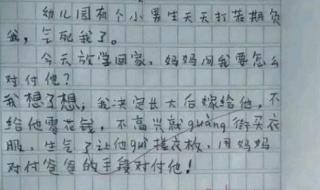 幼儿园有个小男生天天打若期负
我,气死我了。
今天放学回家,妈妈问我要怎么
对付他?
我想了想,我决定长大后嫁给他,不
给他零花钱,不高兴就guàng街买衣
服,生气了让他guì搓衣板,用妈妈
对付爸爸的手段对付他!